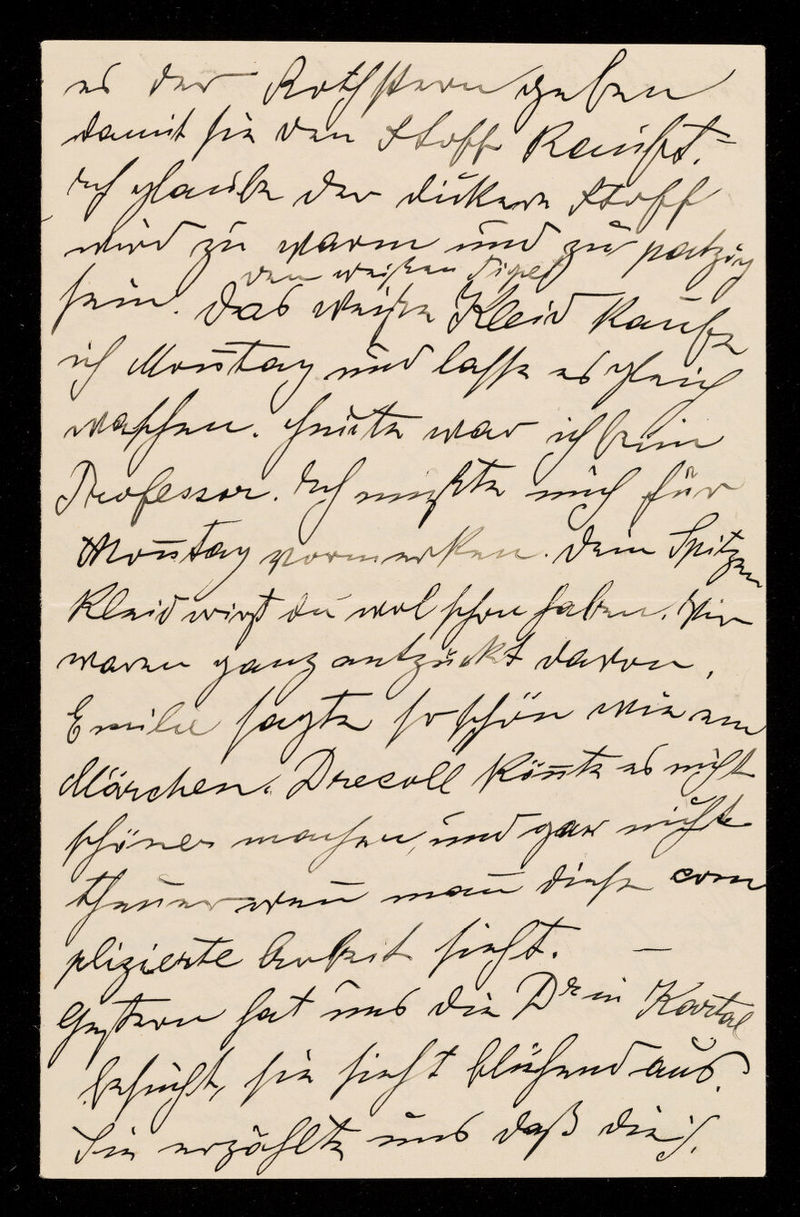 es der Rothstern geben
damit sie den Stoff kauft. =
Ich glaube der dickere Stoff
wird zu warm und zu patzig
den weißen
sein. Das weiße Kleid kaufe
ich Mon̄tag und lasse es gleich
waschen. Heute war ich beim
Professor. Ich mußte mich für
Mon̄tag vormerken. Dein Spitzen
kleid wirst du wol schon haben. Wir
waren ganz entzückt davon.
Emilie sagte so schön wie ein
Märchen. Drecoll kön̄te es nicht
schöner machen, und gar nicht
theuer wen̄ man̄ diese com
plizierte Arbeit sieht. —
Gestern hat uns die Dr in Kartal
besucht, sie sieht blühend aus.
Sie erzählte uns daß die S.